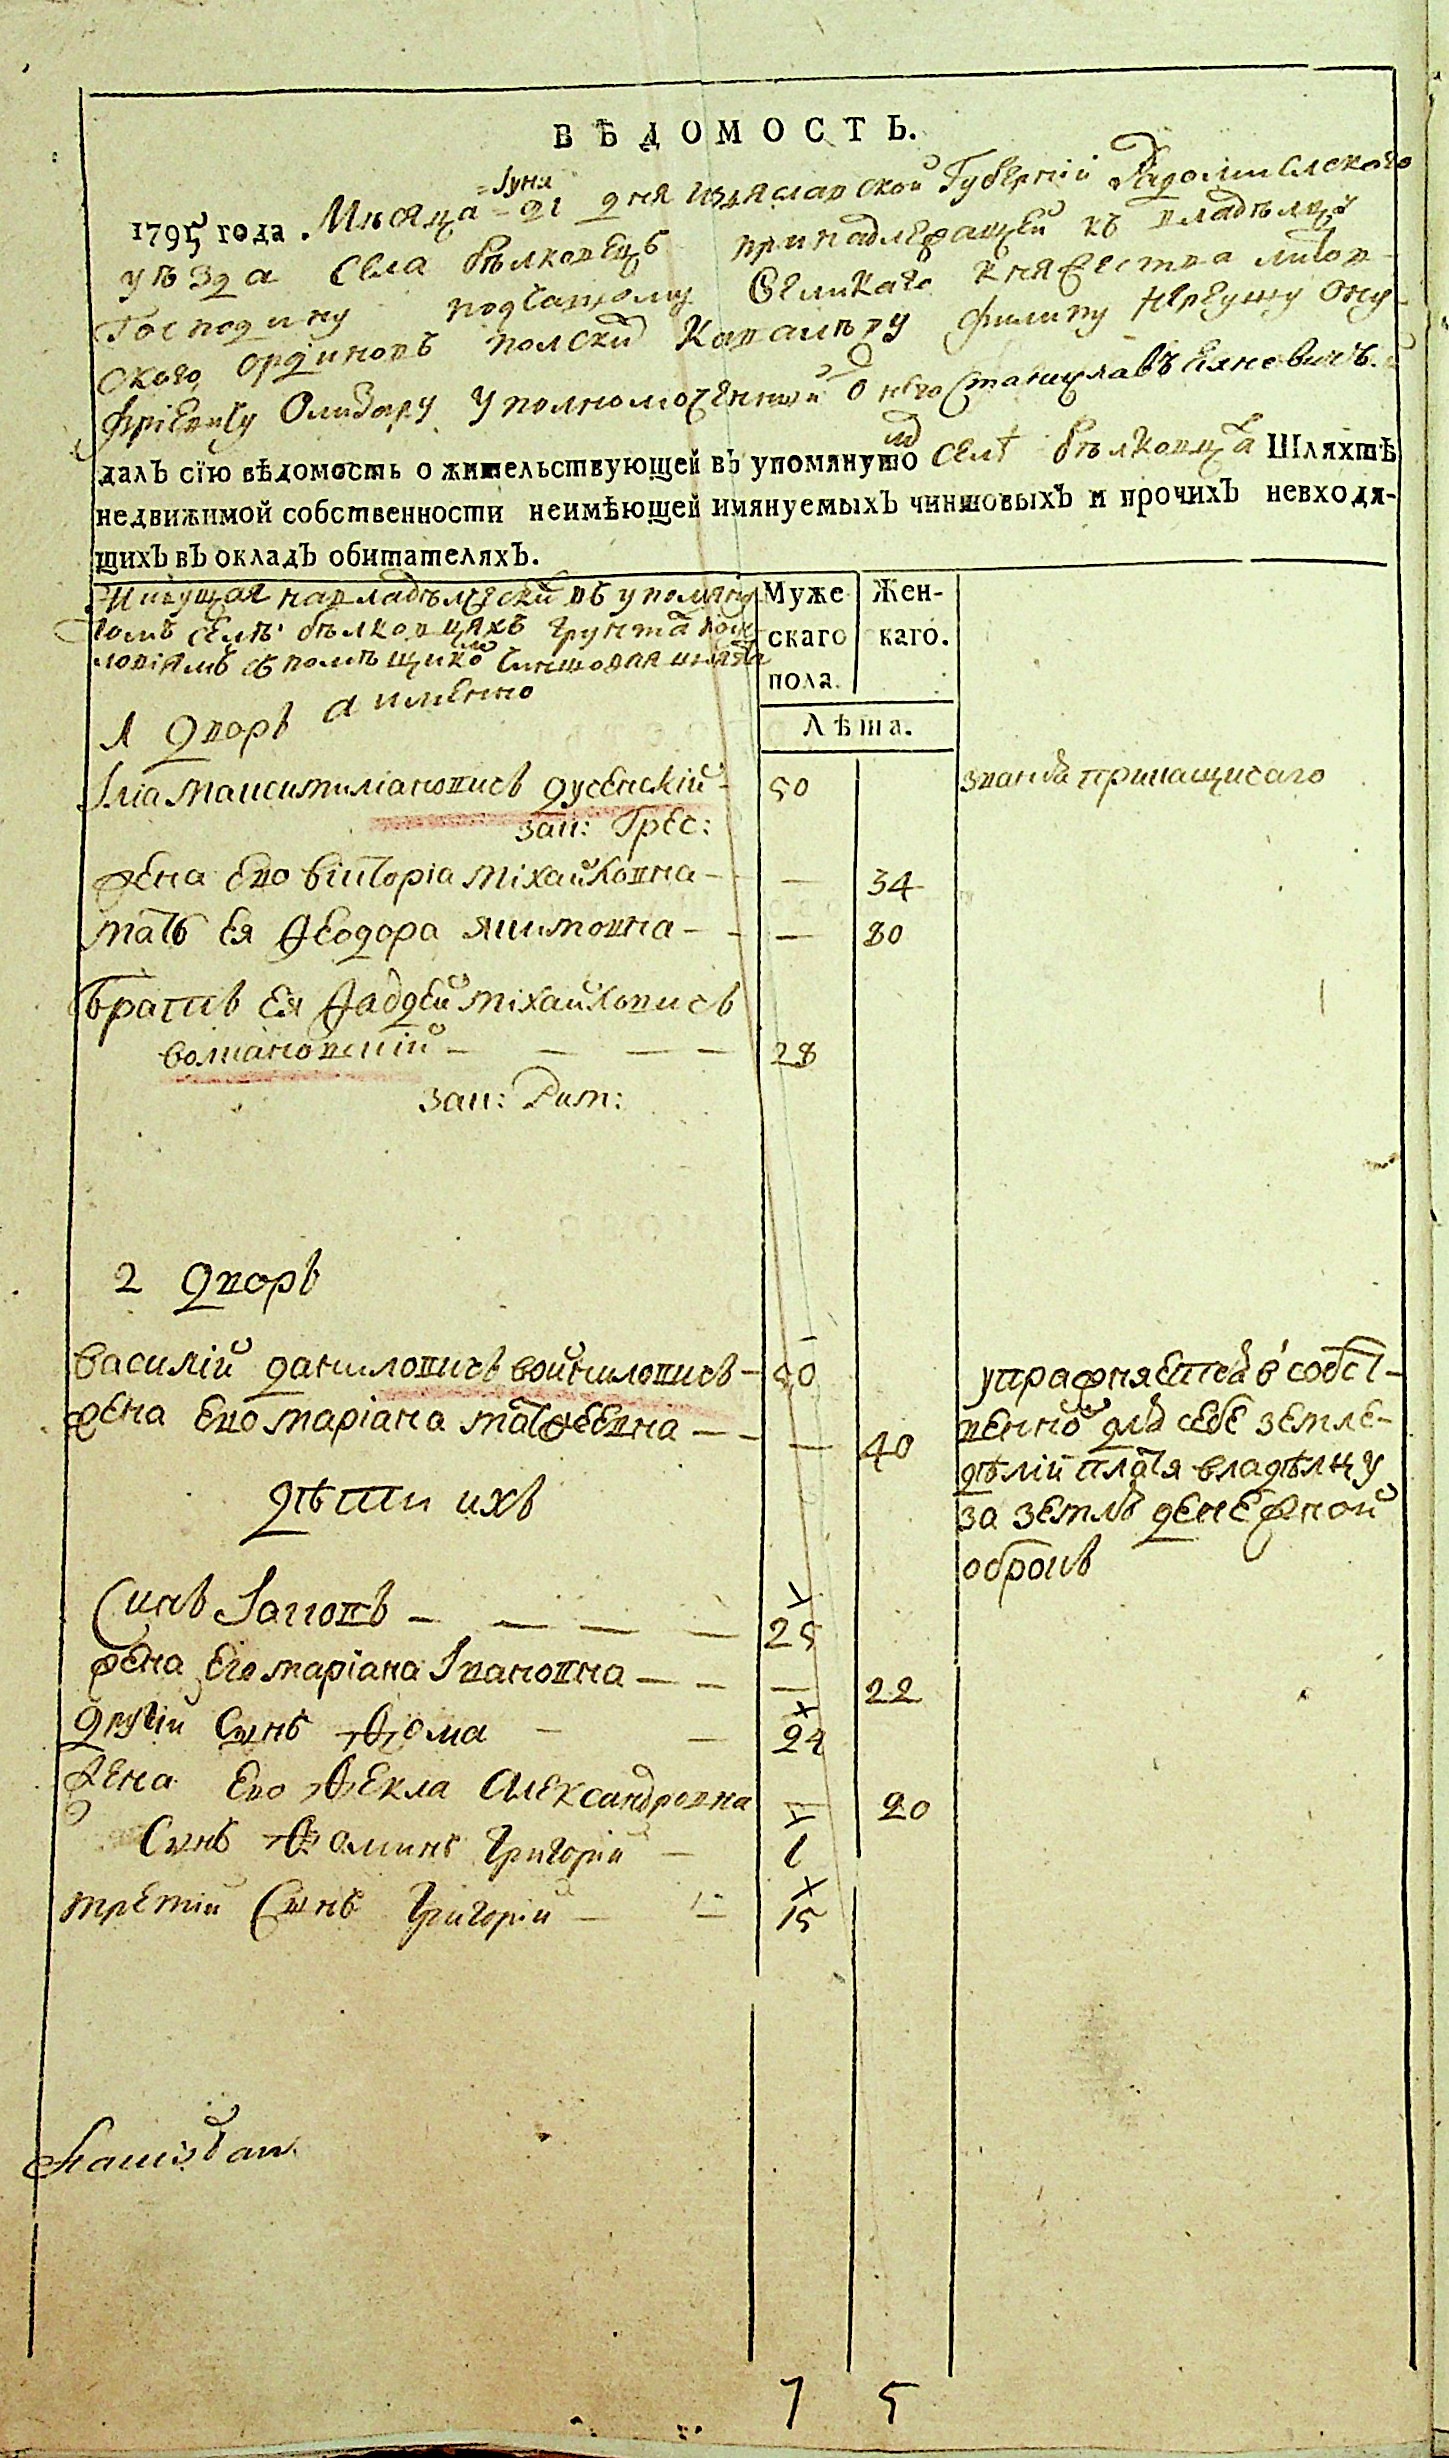 ВѢДОМОСТЬ.
Іуня
1795 года. Мѣсяца 21 дня Изяславской Губерніи Радомишлского
уѣзда села бѣлковецъ принадлежащей къ владѣлцу
Господину подчашому Великаго княжества литов-
ского ординовъ полскій Кавалѣру филипу Нереушу Ону-
фріевичу Олизару уполномоченный о него Станиславъ Яневичъ.
далъ сїю вѣдомость о жительствующей въ упомянуто селѣ бѣлковца Шляхтѣ
недвижимой собственности неимѣющей имянуемыхЪ чиншовыхЪ и прочихЪ невходя-
щихЪ вЪ окладЪ обитателяхЪ.
Живущая на владѣлческій въ упомяну
томъ селѣ бѣлковцяхъ грунта
съ помѣщико чиншовая шляхта
а именно
Муже
скаго
пола.
Жен-
каго.
Лѣта.
1 дворъ
Іліа Максимиліановичъ дусенскій 50
зак: Грес:
жена ево викторіа михайловна — 34
мать ея Феодора якимовна — 80
братъ ея Фаддей михайловичъ
волиановскій — 28
зак: Рим:
2 дворъ
василій даниловичъ войниловичъ — 50 упражняется в собст-
жена ево маріана матфеевна — 40 венно для себе земле-
делій платя владѣлцу
дѣти ихъ
за землю денежной
оброкъ
Синъ Іаковъ — 25
жена его маріана Івановна — 22
другій Сынъ Фома — 24
жена ево Фекла Александровна 20
Сынъ Фоминъ Григорій — 1
третій Сынъ Григорій — 15
Stanisław
7 5